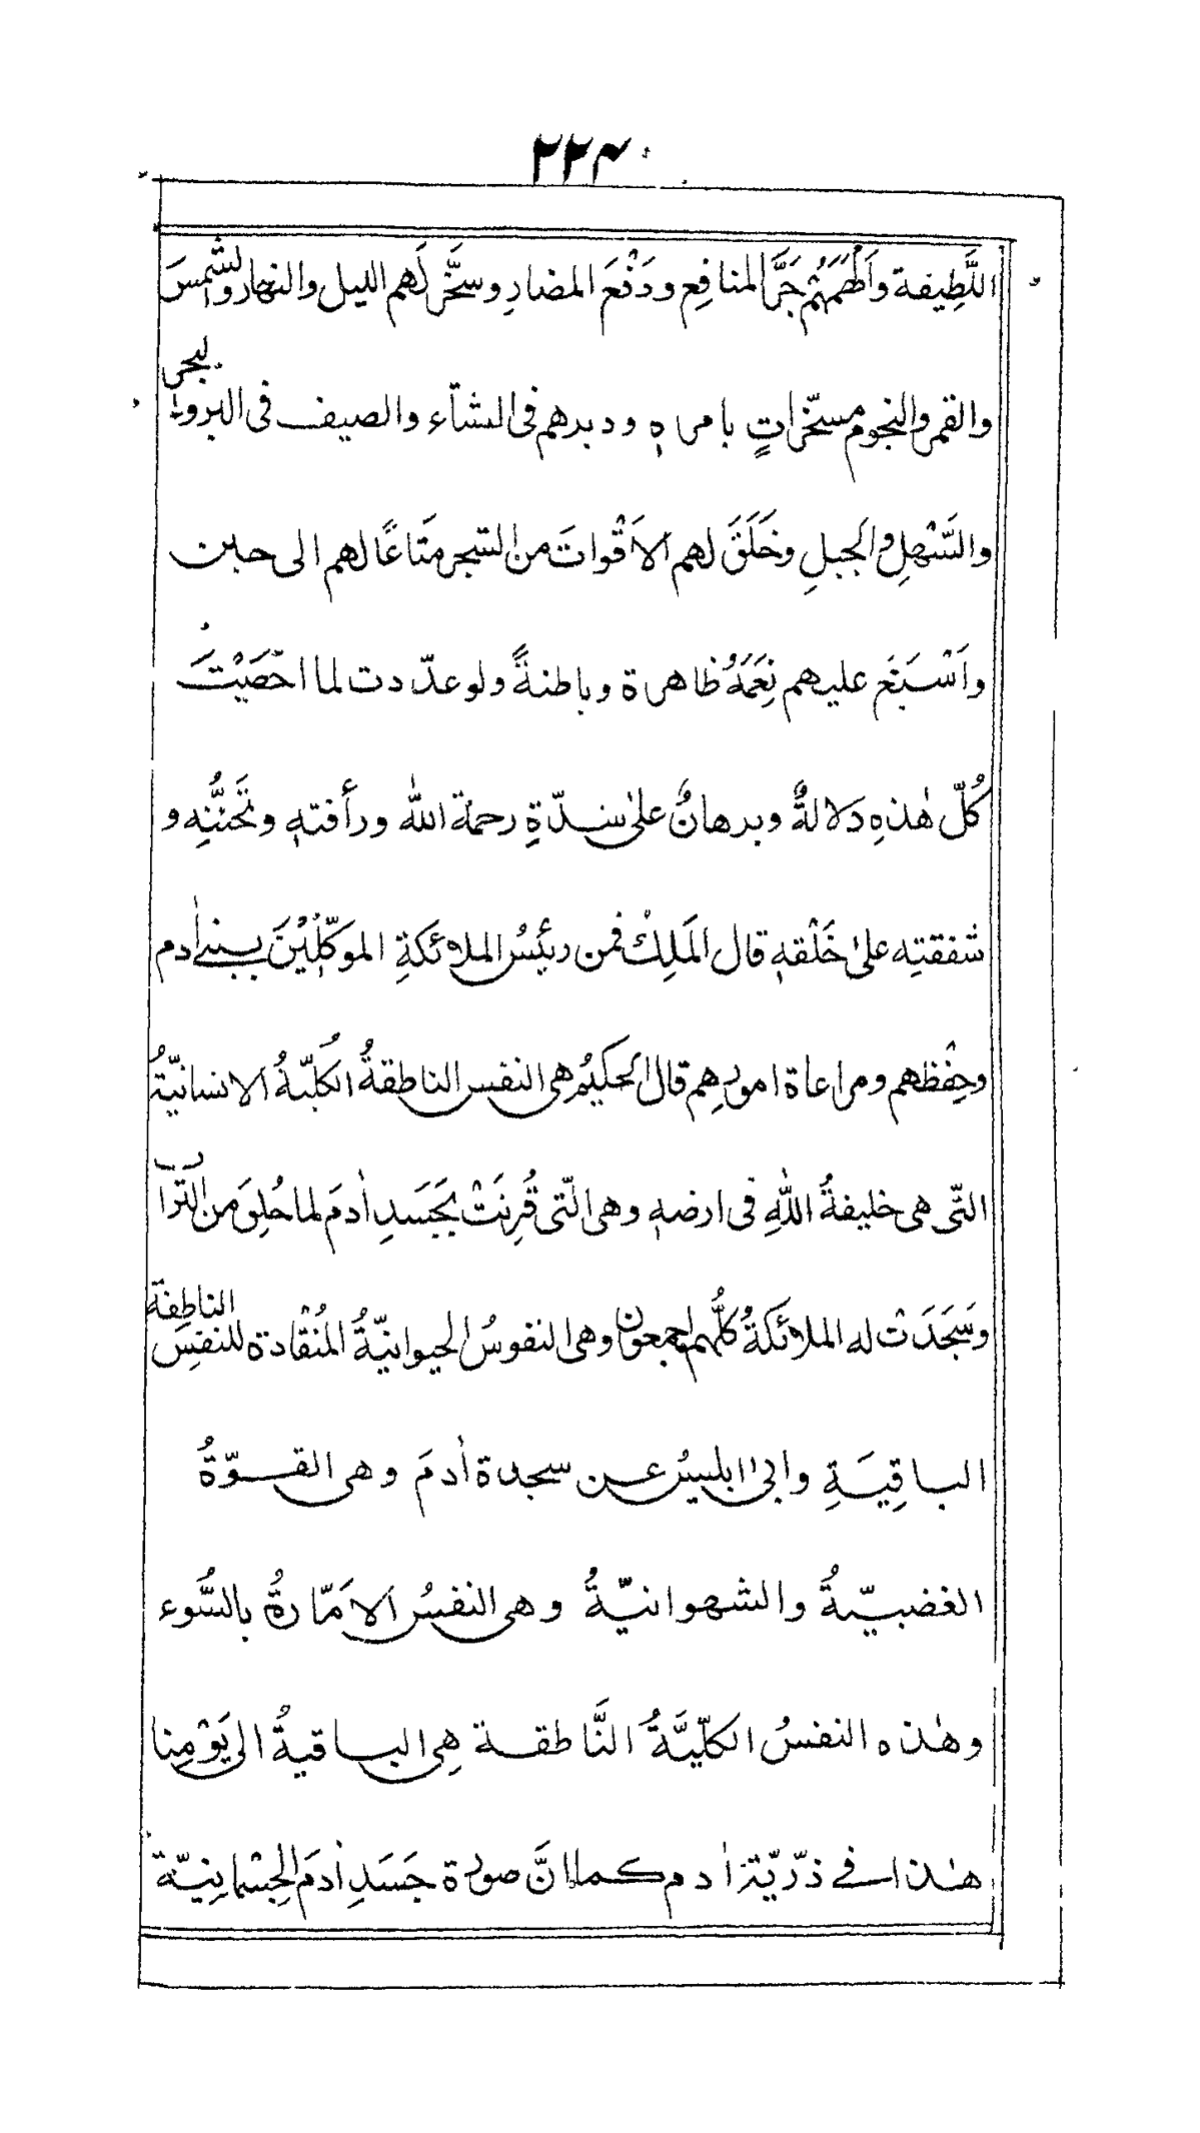 ٢٢٤
اللَّطِيفة وَاَلْهَمَهُمْ جَرَّ المنافِعِ ودَفْعَ المضارِ وسخَّرَ لَهم الليل والنهار والشمسَ
والقمر والنجوم مسخّراتٍ بامره ودبرهم فى الشتآء والصيف فى البر والبحر
والسَّهْلِ والجبلِ وخَلَقَ لهم الاَقْواتَ من الشجر مَتَاعًا لهم الى حين
واَسْبَغَ عليهم نِعَمَهُ ظاهرة وباطنةً ولو عدّدت لما احْصَيْتَ
كُلّ هٰذهِ دَلالةٌ وبرهانٌ علىٰ شدّةِ رحمة اللّٰه ورأفتهٖ وتَحَنُّنِهِ و
شفقتِه علىٰ خَلْقهٖ قال المَلِكْ فمن رئيسُ الملائكةِ الموكَّلِيْنَ ببنى اٰدم
وحِفْظِهم ومراعاة امورِهِم قال الحكيمُ هى النفس الناطقةُ الكُلّيّةُ الانسانيّةُ
التّى هى خليفةُ اللّٰهِ فى ارضهٖ وهى الّتى قُرِنَتْ بِجَسَدِ اٰدمَ لما خُلِقَ من التّراب
وسَجَدَتْ له الملائكةُ كلُّهم اجمعون وهى النفوسُ الحيوانيّةُ المُنْقادة للنفسِ الناطقة
الباقِيَةِ وابىٰ ابليسُ عن سجدة اٰدمَ وهى القوّةُ
الغضبيّةُ والشهوانيّةُ وهى النفسُ الاَمّارةُ بالسُّوء
وهٰذه النفسُ الكلّيَّةُ النَّاطقة هِى الباقيةُ الى يَوْمِنا
هٰذا فى ذرّيّة اٰدم كما انَّ صورة جَسَدِ اٰدمَ الجِسْمانِيّة